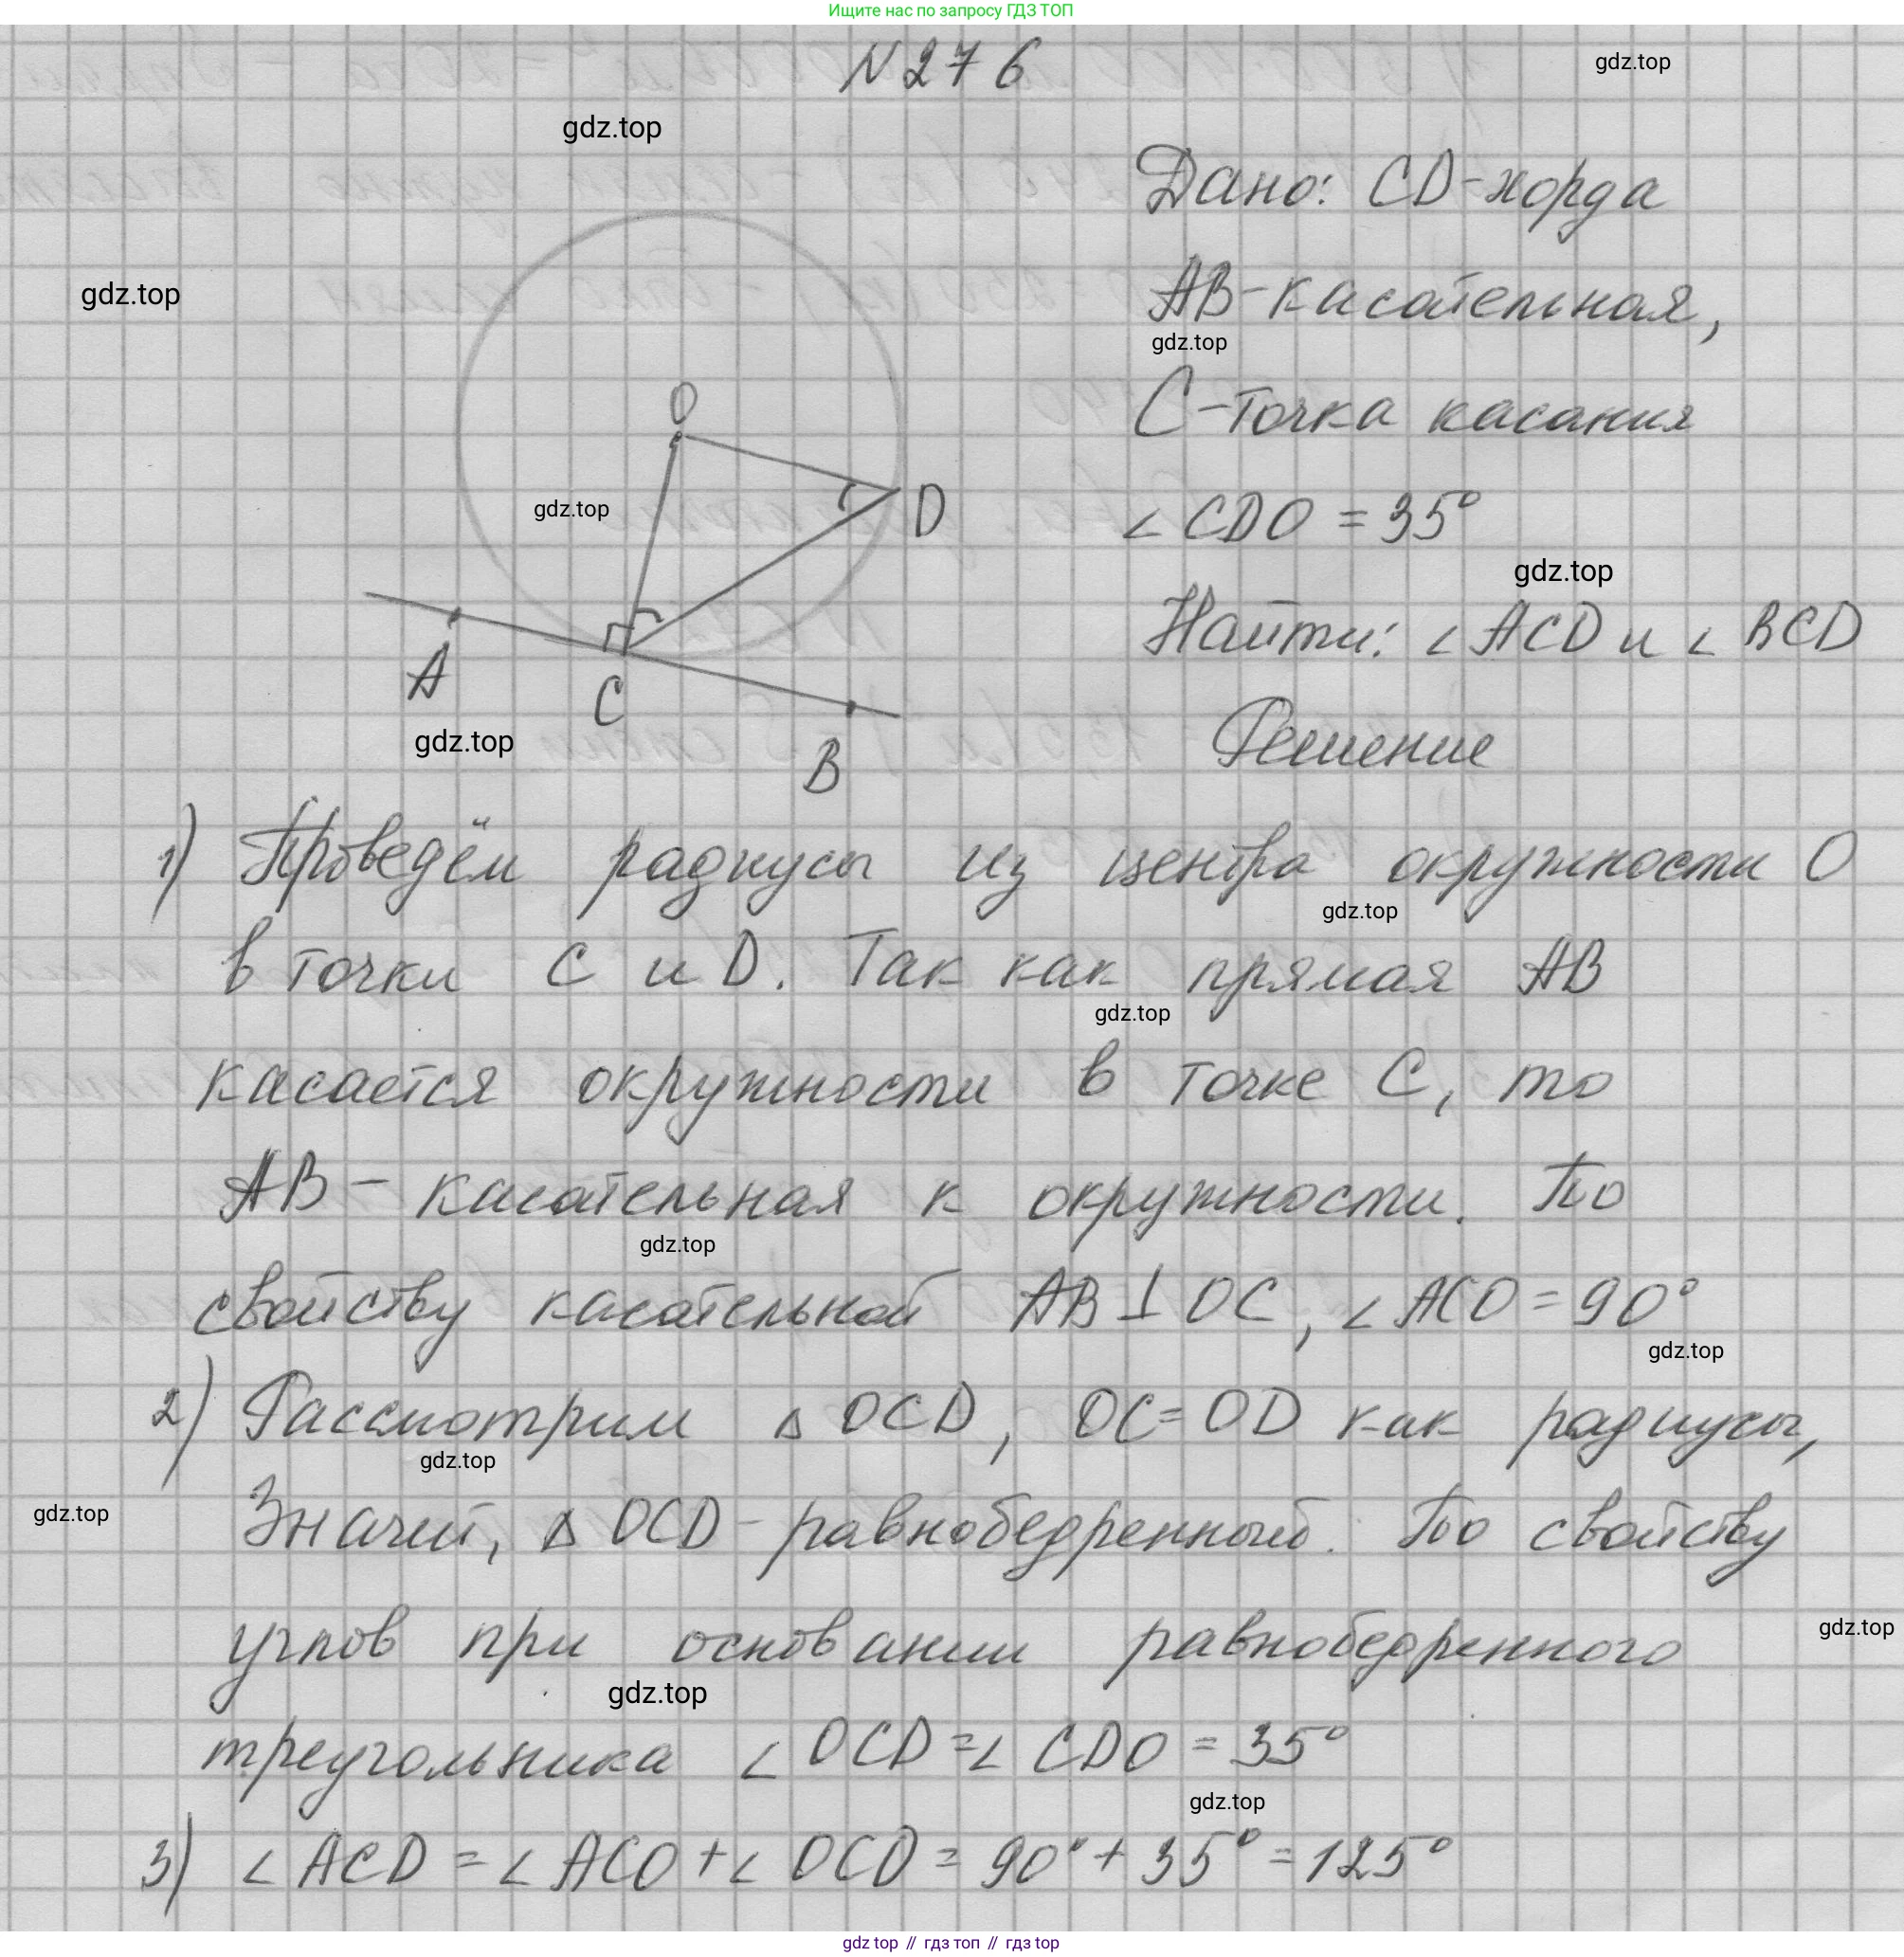 Ищите нас по запросу ГДЗ ТОП
N276
gdz.top
gdz.top
Дано: CD-хорда
gdz.top
AB-касательная,
gdz.top
C-точка касания
O
gdz.top
D
∠CDO = 35°
gdz.top
Найти: ∠ACD и ∠BCD
A
C
gdz.top
B
Решение
1) Проведём радиусы из центра окружности O
gdz.top
в точки C и D. Так как прямая AB
gdz.top
касается окружности в точке C, то
AB - касательная к окружности. По
gdz.top
свойству касательной AB⊥OC, ∠ACO=90°
gdz.top
2) Рассмотрим △OCD, OC=OD как радиусы,
gdz.top
gdz.top
Значит, △OCD-равнобедренный. По свойству
углов при основании равнобедренного
gdz.top
gdz.top
треугольника ∠OCD=∠CDO=35°
gdz.top
3) ∠ACD=∠ACO+∠OCD=90°+35°=125°
gdz top // гдз топ // гдз top